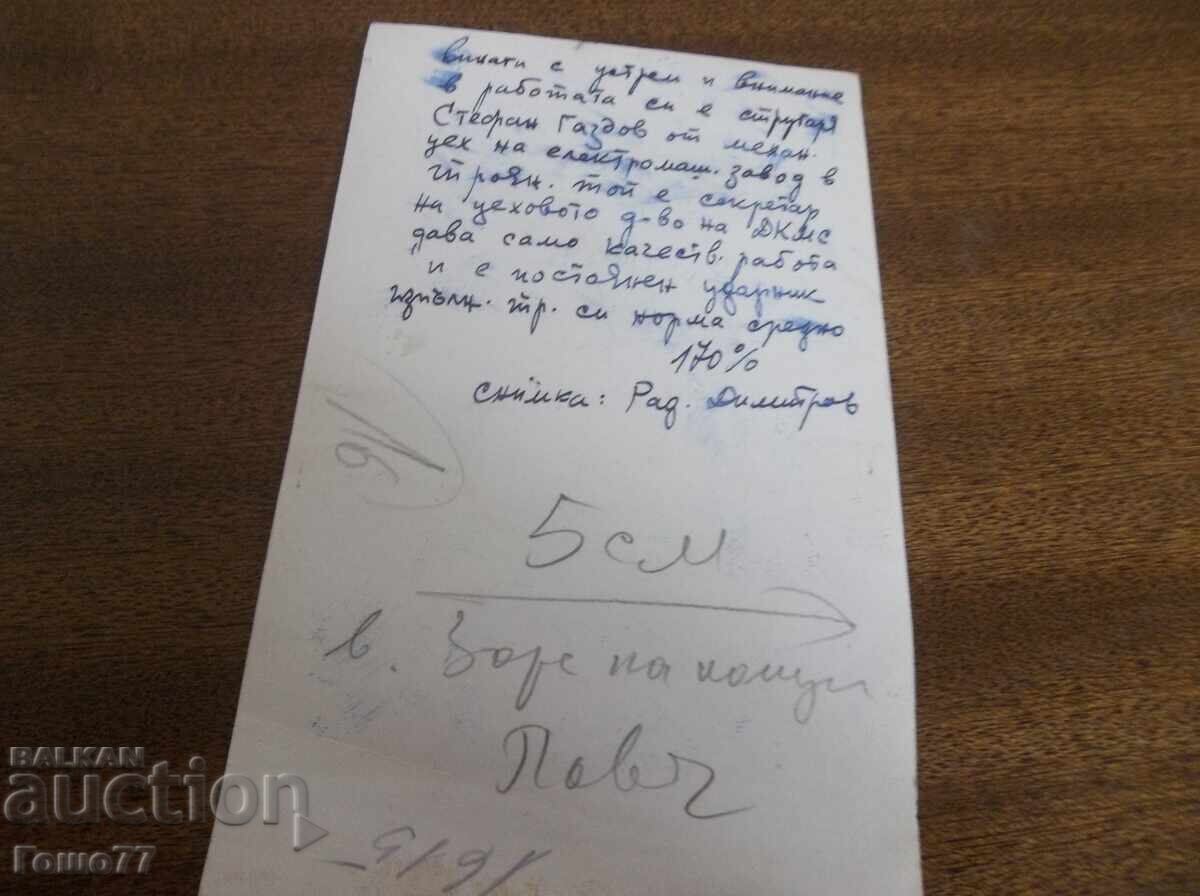 винаги с устрем и внимание
в работата си е стругаря
Стефан Газдов от механ.
цех на електромаш. завод в
Троян. Той е секретар
на цеховото д-во на ДКМС
дава само качеств. работа
и е постоянен ударник
изпълн. тр. си норма средно
170%
снимка: Рад. Димитров
5 см
в.
BALKAN
auction
Гошо77